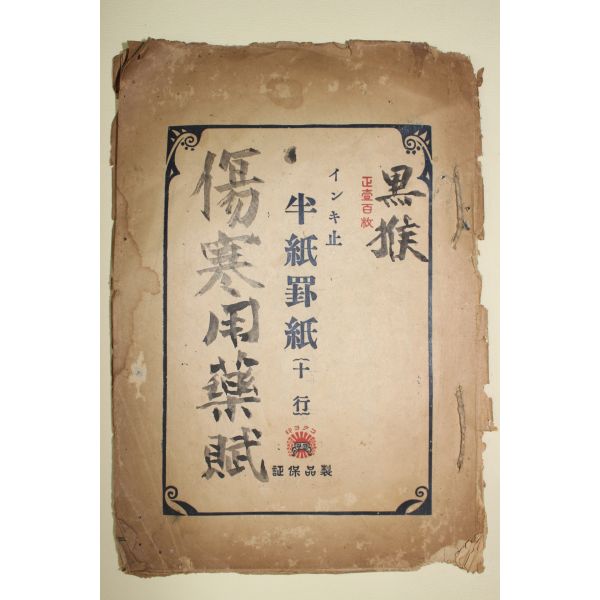 黒猴
正壹百枚
インキ止
半紙罫紙（十行）
コクヨ印
製品保証
傷寒用藥賦